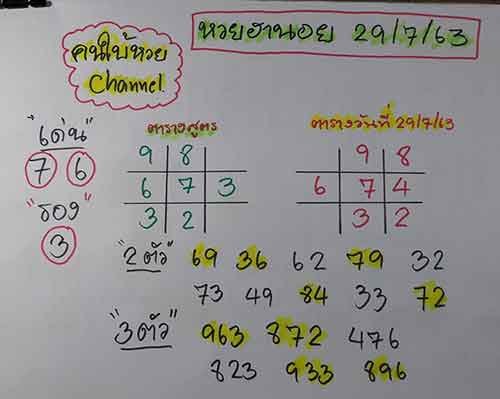 หวยฮานอย 29/7/63
คนใบ้หวย
Channel
"เด่น"
7 6
"รอง"
3
ตารางสูตร
9 8
6 7 3
3 2
ตารางวันที่ 29/7/63
9 8
6 7 4
3 2
"2ตัว" 69 36 62 79 32
73 49 84 33 72
"3ตัว" 963 872 476
823 933 896